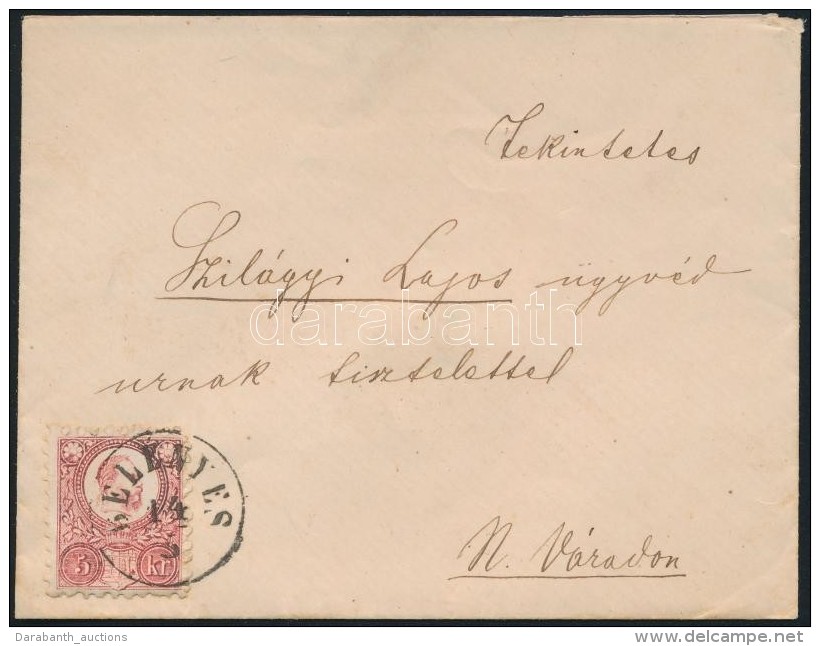 Tekintetes
Szilágyi Lajos ügyvéd
darabanth
urnak tisztelettel
BELÉNYES
14
5 kr
N. Váradon
Darabanth_auctions
http://www.delcampe.net